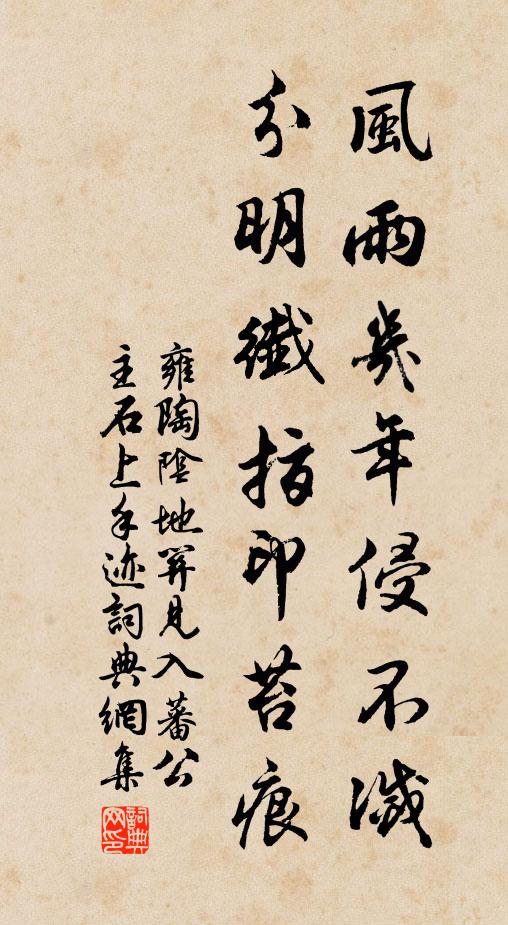 風雨幾年侵不滅
分明纖指印苔痕
雍陶陰地關見入蕃公
主石上手迹詞典網集
詞典网印